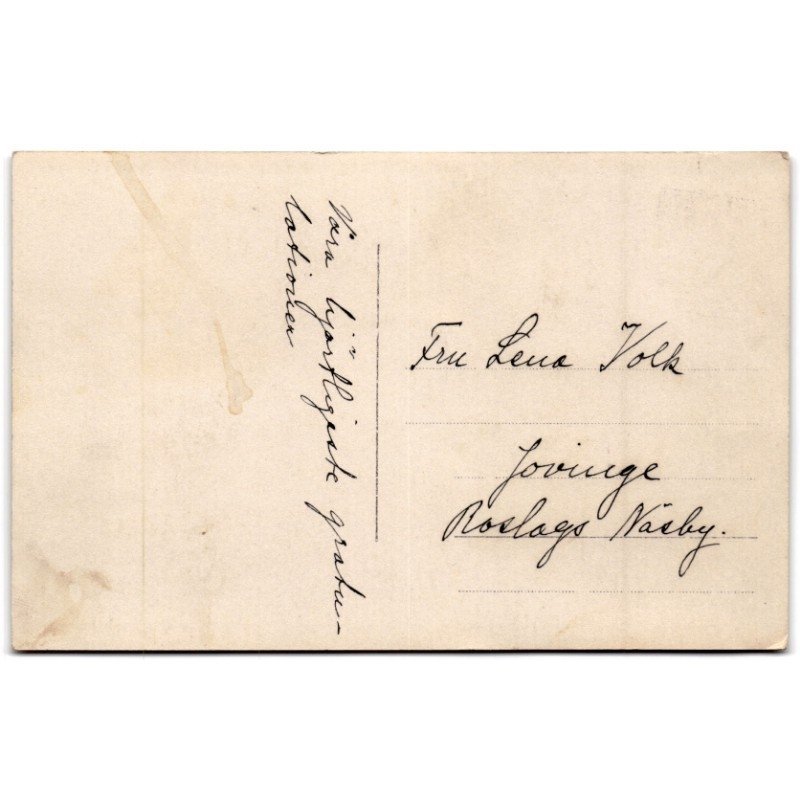 Våra hjärtligaste gratu-
lationer
Fru Lena Volk
Jovinge
Roslags Näsby.